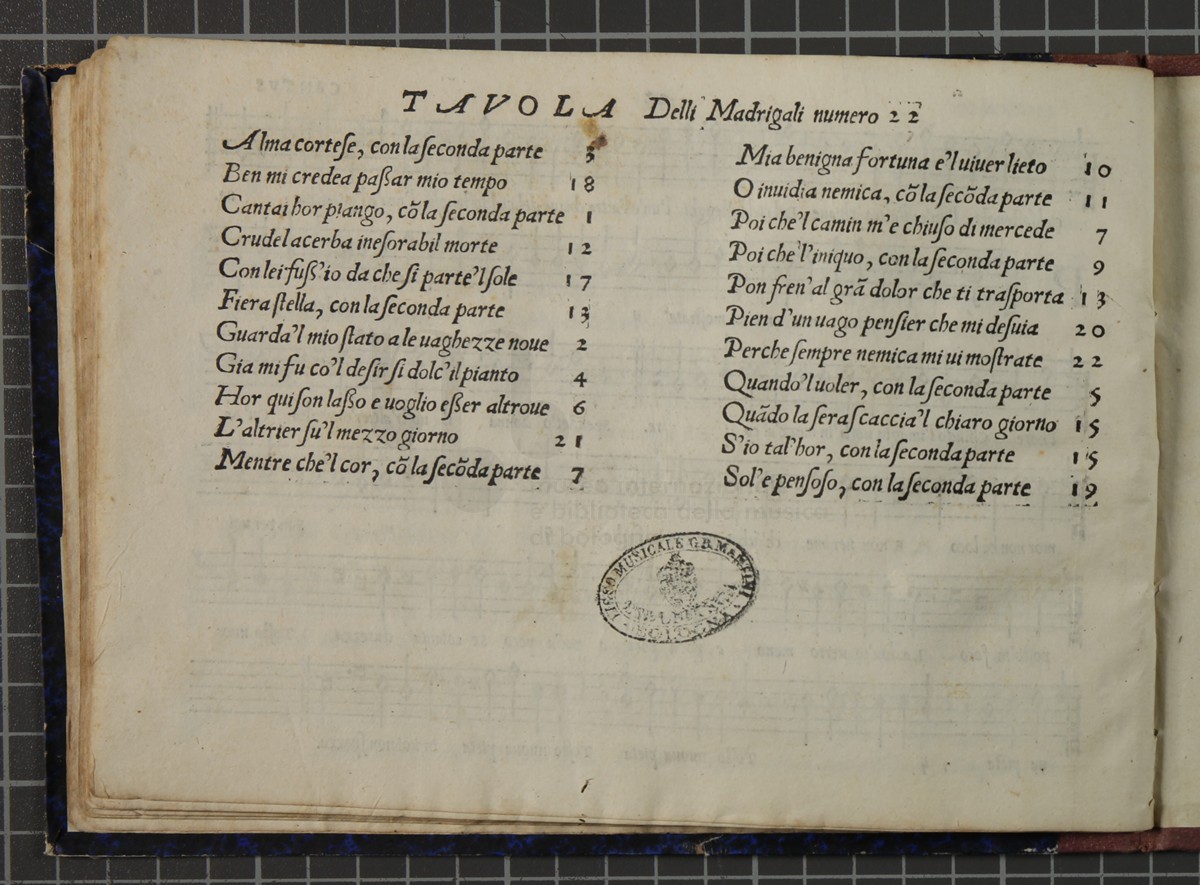 TAVOLA Delli Madrigali numero 22
Alma corteſe, con la ſeconda parte 3
Ben mi credea paßar mio tempo 18
Cantai hor piango, cō la ſeconda parte 1
Crudel acerba ineſorabil morte 12
Con lei fuſſ'io da che ſi parte'l ſole 17
Fiera ſtella, con la ſeconda parte 13
Guarda'l mio ſtato a le uaghezze noue 2
Gia mi fu co'l deſir ſi dolc'il pianto 4
Hor qui ſon laßo e uoglio eßer altroue 6
L'altrier ſu'l mezzo giorno 21
Mentre che'l cor, cō la ſecōda parte 7
Mia benigna fortuna e'l uiuer lieto 10
O inuidia nemica, cō la ſecōda parte 11
Poi che'l camin m'e chiuſo di mercede 7
Poi che'l'iniquo, con la ſeconda parte 9
Pon fren'al grā dolor che ti traſporta 13
Pien d'un uago penſier che mi deſuia 20
Perche ſempre nemica mi ui moſtrate 22
Quando'l uoler, con la ſeconda parte 5
Quādo la ſera ſcaccia'l chiaro giorno 15
S'io tal'hor, con la ſeconda parte 15
Sol'e penſoſo, con la ſeconda parte 19
museo internaz
e biblioteca della musica
di bologna
MUSICALE G.B. MARTINI
BOLOGNA